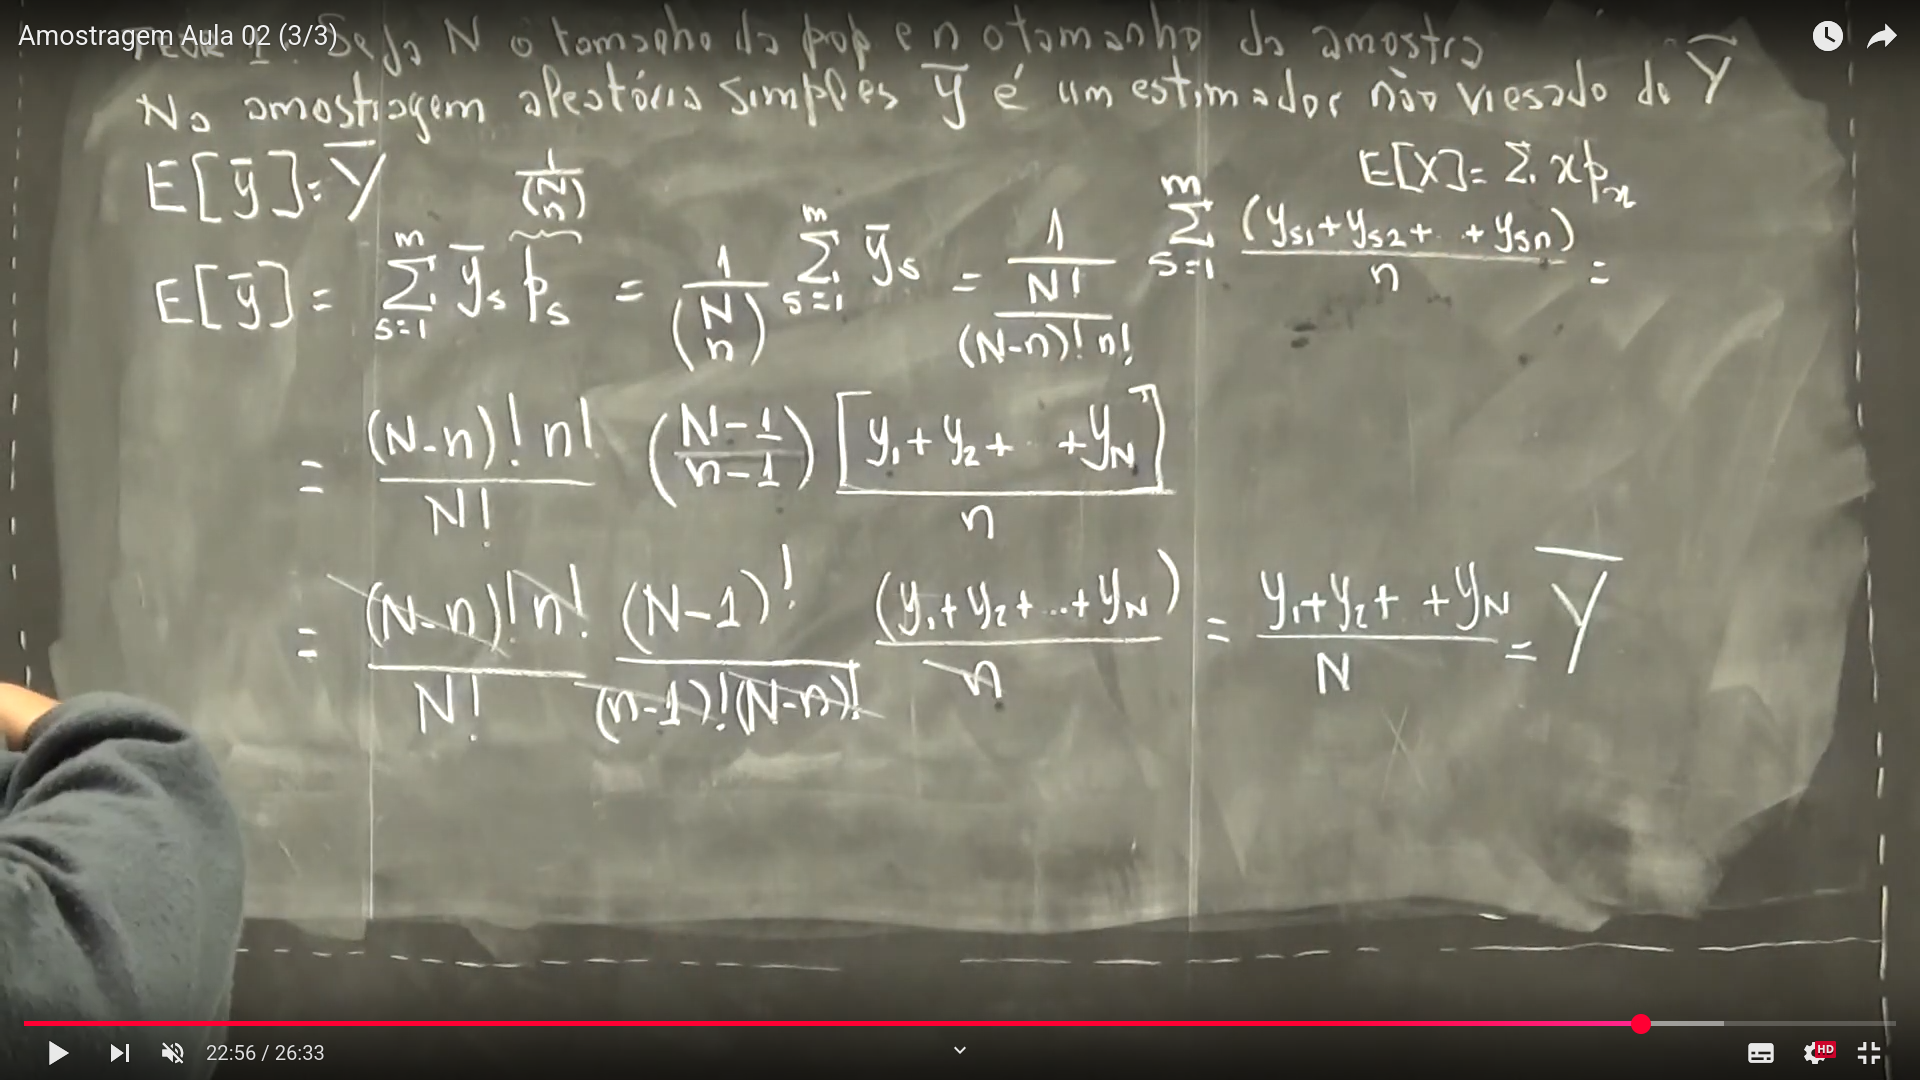 Amostragem Aula 02 (3/3)
Teor 1: Seja N o tamanho da pop e n o tamanho da amostra
Na amostragem aleatória simples ȳ é um estimador não viesado de Ȳ
E[ȳ] = Ȳ 1/(N n) E[X] = Σ x pₓ
E[ȳ] = Σ_{s=1}^{m} ȳₛ pₛ = 1/(N n) Σ_{s=1}^{m} ȳₛ = 1/(N!/((N-n)! n!)) Σ_{s=1}^{m} (y_{s1} + y_{s2} + .. + y_{sn})/n =
= (N-n)! n!/N! (N-1/n-1) [y₁ + y₂ + .. + y_N]/n
= (N-n)! n!/N! (N-1)!/((n-1)! (N-n)!) (y₁ + y₂ + ... + y_N)/n = (y₁ + y₂ + + y_N)/N = Ȳ
22:56 / 26:33
HD